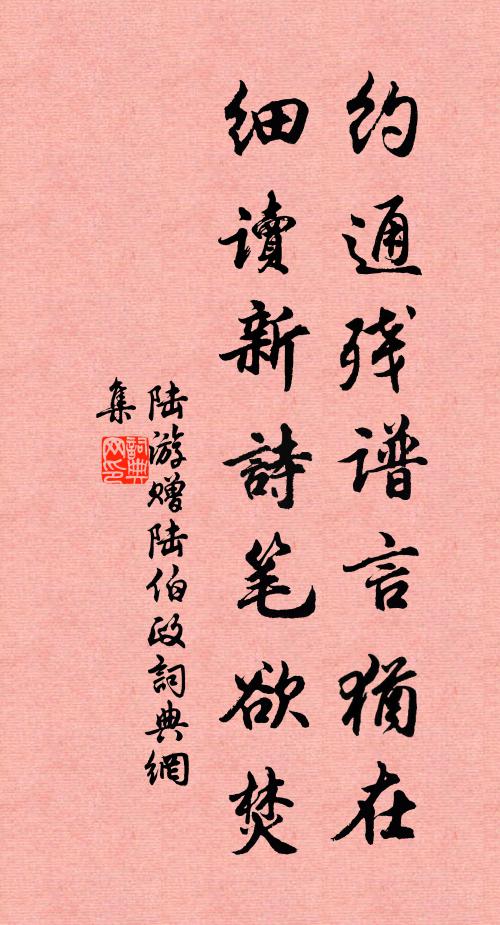 约通残谱言犹在
细读新詩笔欲焚
陆游赠陆伯政詞典網
集
詞典网印